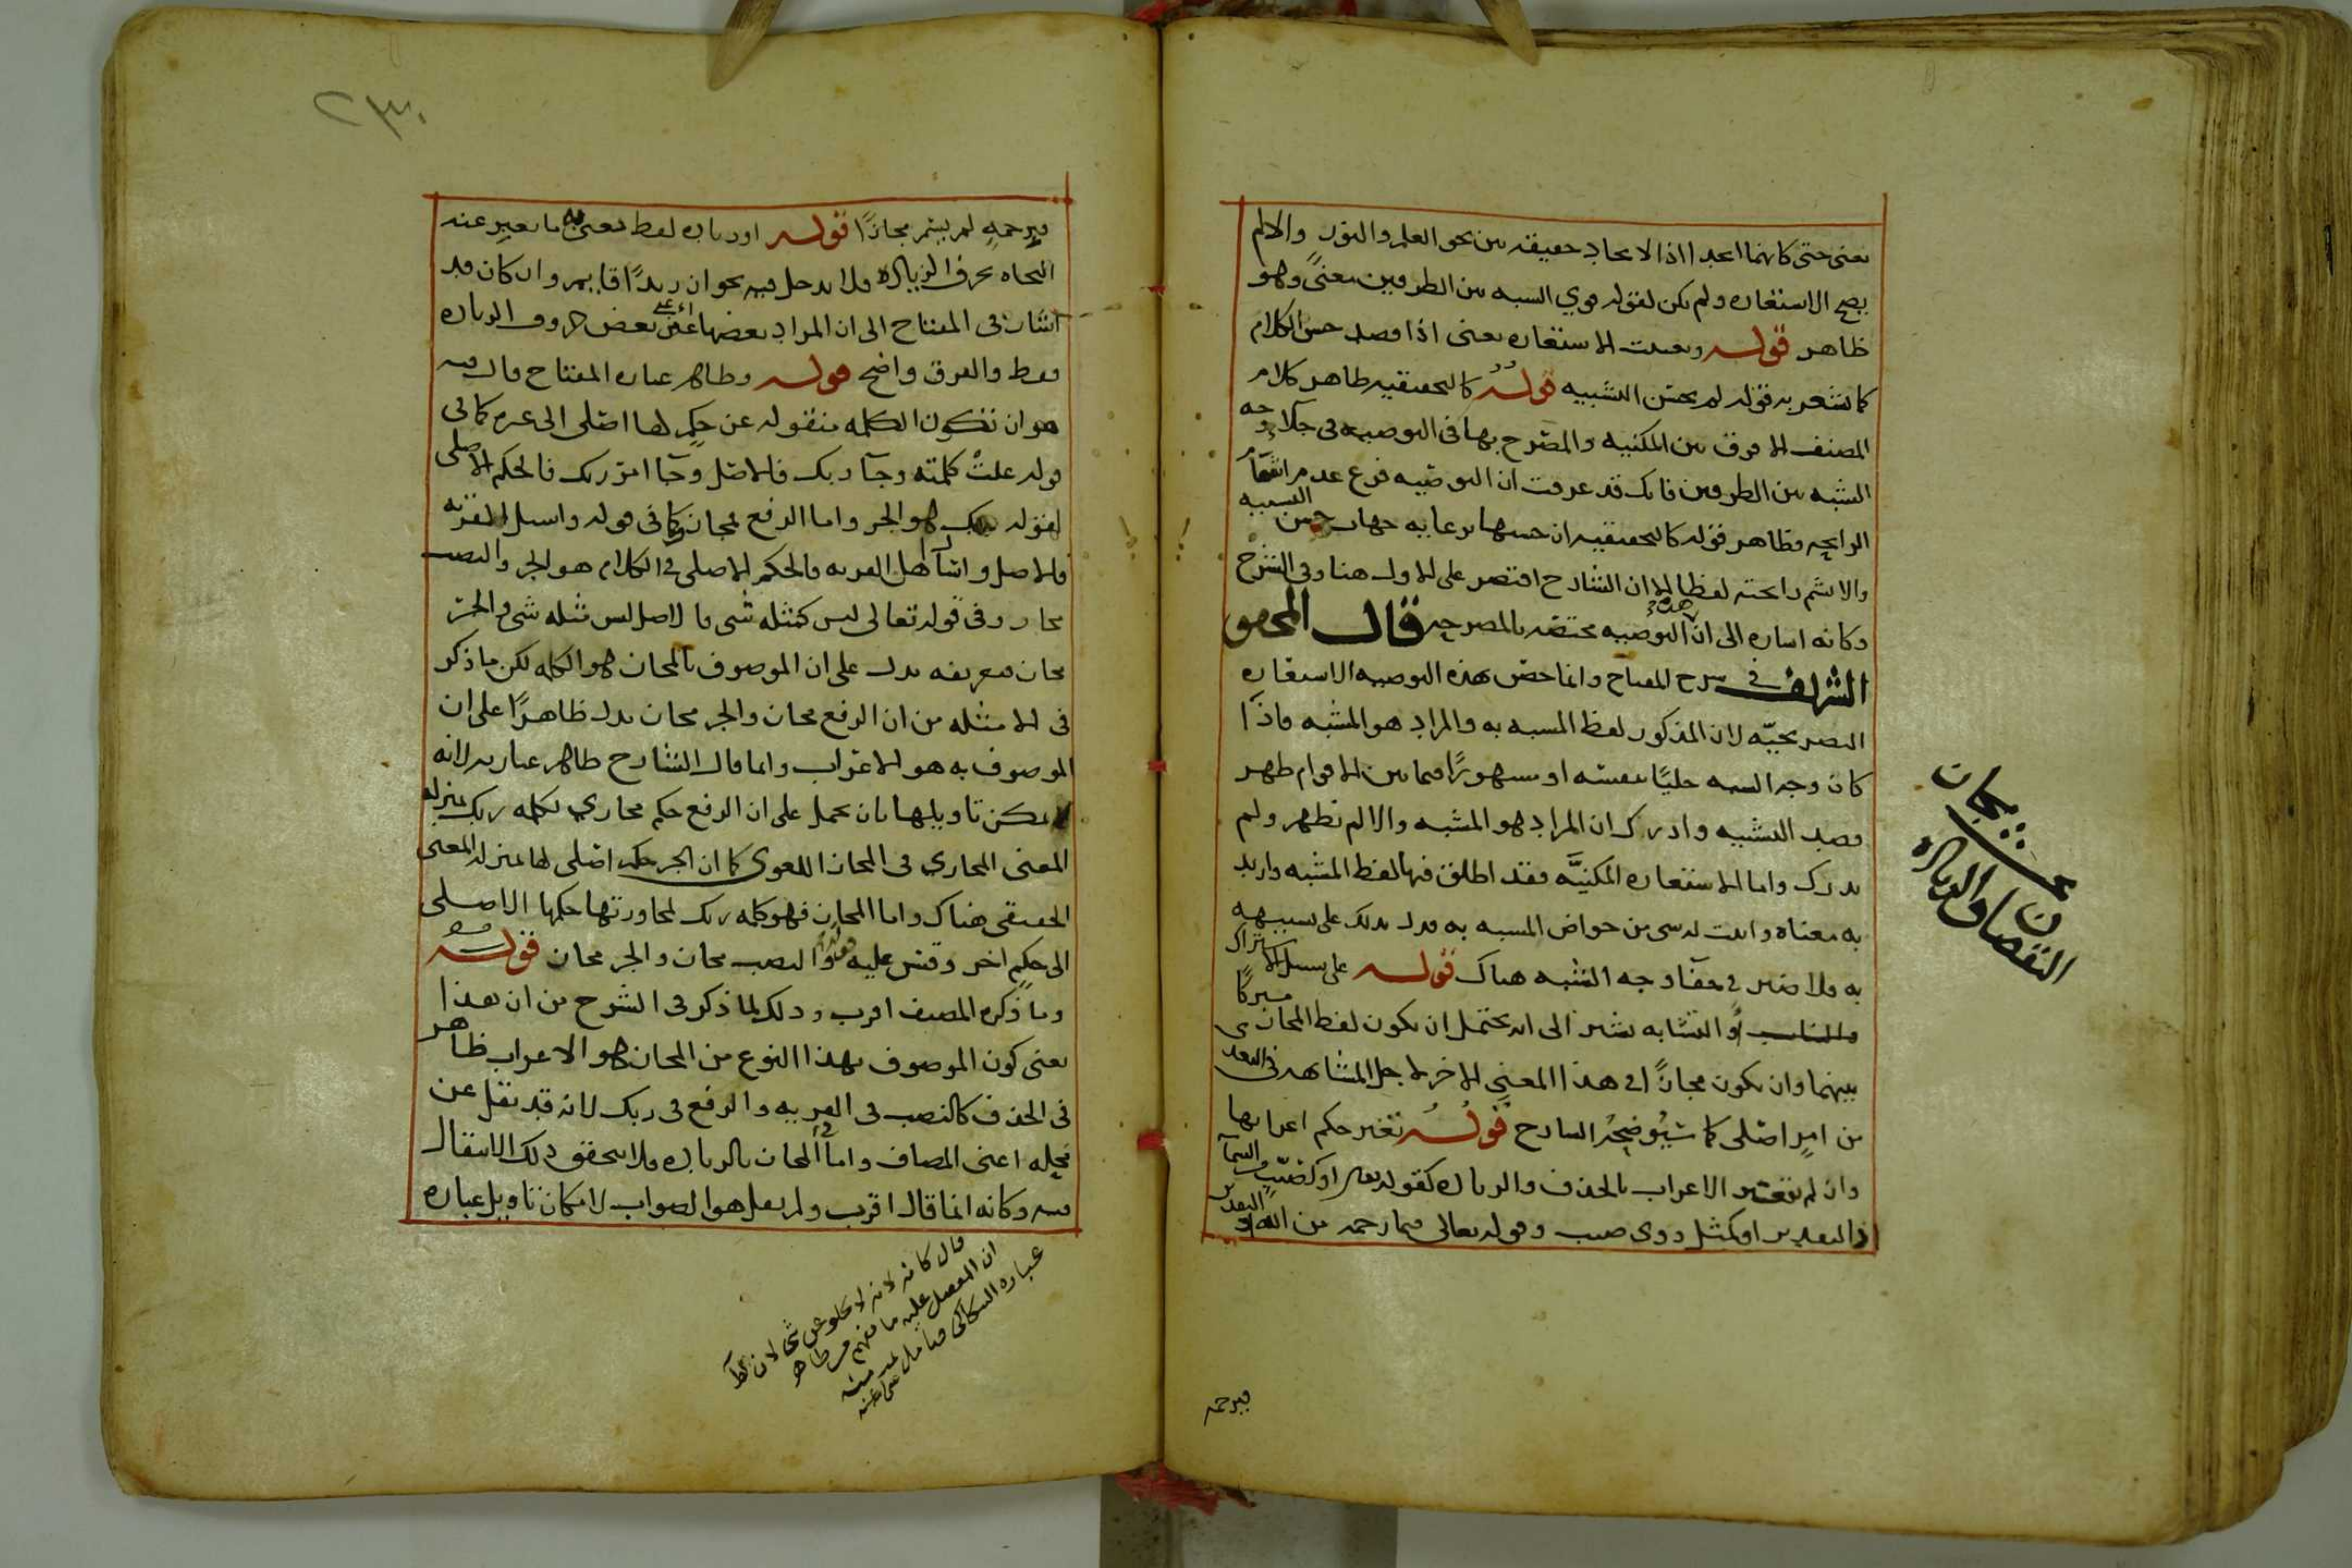 يعني حتى كانهما اتحدا اذ الاتحاد حقيقة بين نحو العلم والنور والالم
يصح الاستعاره ولم يكن لقوله قوي الشبه بين الطرفين معنىً وهو
ظاهر قوله وتعينت الاستعاره يعنى اذا قصد حسن الكلام
كما يشعر به قوله لم يحسن التشبيه قوله كالتحقيقيه ظاهر كلام
المصنف الا فرق بين المكنيه والمصرح بها فى التوصيه فى جلا وجه
الشبه بين الطرفين فانك قد عرفت ان التوصيه فرع عدم اشمام
الرايحه فظاهر قوله كالتحقيقيه ان حسنها برعايه جهات حسن التشبيه
والا يشم رايحته لفظا الا ان الشارح اقتصر على الاول هنا وفى الشرح
وكانه اشاره الى ان هذه التوصيه مختصه بالمصرحه قال المحقق
الشريف في شرح المفتاح وانما خص بهذه التوصيه الاستعاره
التصريحيّه لان المذكور لفظ المشبه به والمراد هو المشبه فاذا
كان وجه الشبه جليًا بنفسه او مشهورًا فيما بين الاقوام ظهر
قصد التشبيه وادرك ان المراد هو المشبه والا لم تظهر ولم
يدرك واما الاستعاره المكنيَّه فقد اطلق فيها لفظ المشبه واريد
به معناه واثبت له شى من خواص المشبه به فدل بذلك على تشبيهه
به فلا ضير في خفآ وجه الشبه هناك قوله على سبيل الاشتراك
والتشابه يشير الى انه يحتمل ان يكون لفظ المجاز مشتركًا
بينهما وان يكون مجازًا في هذا المعنى الاخر لاجل المشابهه فى التعدى
من امرٍ اصلى كما سيُوضحُه الشارح قولُه تغير حكم اعرابها
وان لم يتغير الاعراب بالحذف والزياده كقوله تعالى او كصيّبٍ من السمآ
اذ التقدير او كمثل ذوى صيب وقوله تعالى فبما رحمه من الله اذ التقدير
فبرحمه
بحث مجاز
النقصان والزياده
٢٣٠
فبرحمهٍ لم يسم مجازًا قوله او زياده لفظ يعنى به ما يعبر عنه
النحاه بحرف الزياده فلا يدخل فيه نحو ان زيدًا قايم وان كان قد
اشار فى المفتاح الى ان المراد بعضها اعنى بعض حروف الزياده
فقط والفرق واضح قوله وظاهر عباره المفتاح قال فيه
هو ان تكون الكلمه منقوله عن حكمٍ لها اصلى الى غيره كما فى
قوله علتْ كلمته وجآ ربك فالاصل وجآ امر ربك فالحكم الاصلى
لقوله ربك هو الجر واما الرفع فمجاز وكما فى قوله واسئل القريه
فالاصل واسئل اهل القريه فالحكم الاصلى في الكلام هو الجر والنصب
مجاز وفى قوله تعالى ليس كمثله شى فالاصل ليس مثله شى والجر
مجاز فتعريفه يدل على ان الموصوف بالمجاز هو الكلمه لكن ما ذكر
فى الامثله من ان الرفع مجاز والجر مجاز يدل ظاهرًا على ان
الموصوف به هو الاعراب وانما قال الشارح ظاهر عبارته لانه
يمكن تاويلها بان يحمل على ان الرفع حكم مجازي لكلمه ربك بمنزله
المعنى المجازي فى المجاز اللغوى كما ان الجر حكم اصلى لها بمنزله المعنى
الحقيقى هناك واما المجاز فهو كلمه ربك لمجاوزتها حكمها الاصلى
الى حكمٍ اخر وقس عليه قوله والنصب مجاز والجر مجاز قوله
وما ذكره المصنف اقرب وذلك لما ذكر فى الشرح من ان هذا
يعنى كون الموصوف بهذا النوع من المجاز هو الاعراب ظاهر
فى الحذف كالنصب فى القريه والرفع فى ربك لانه قد نقل عن
محله اعنى المضاف واما في المجاز بالزياده فلا يتحقق ذلك الانتقال
فيه وكانه انما قال اقرب ولم يقل هو الصواب لامكان تاويل عباره
قال كانه لانه لا يخلو عن شى لان
ان المفضل عليه ما يفهم من ظاهر
عباره السكاكى فتامل